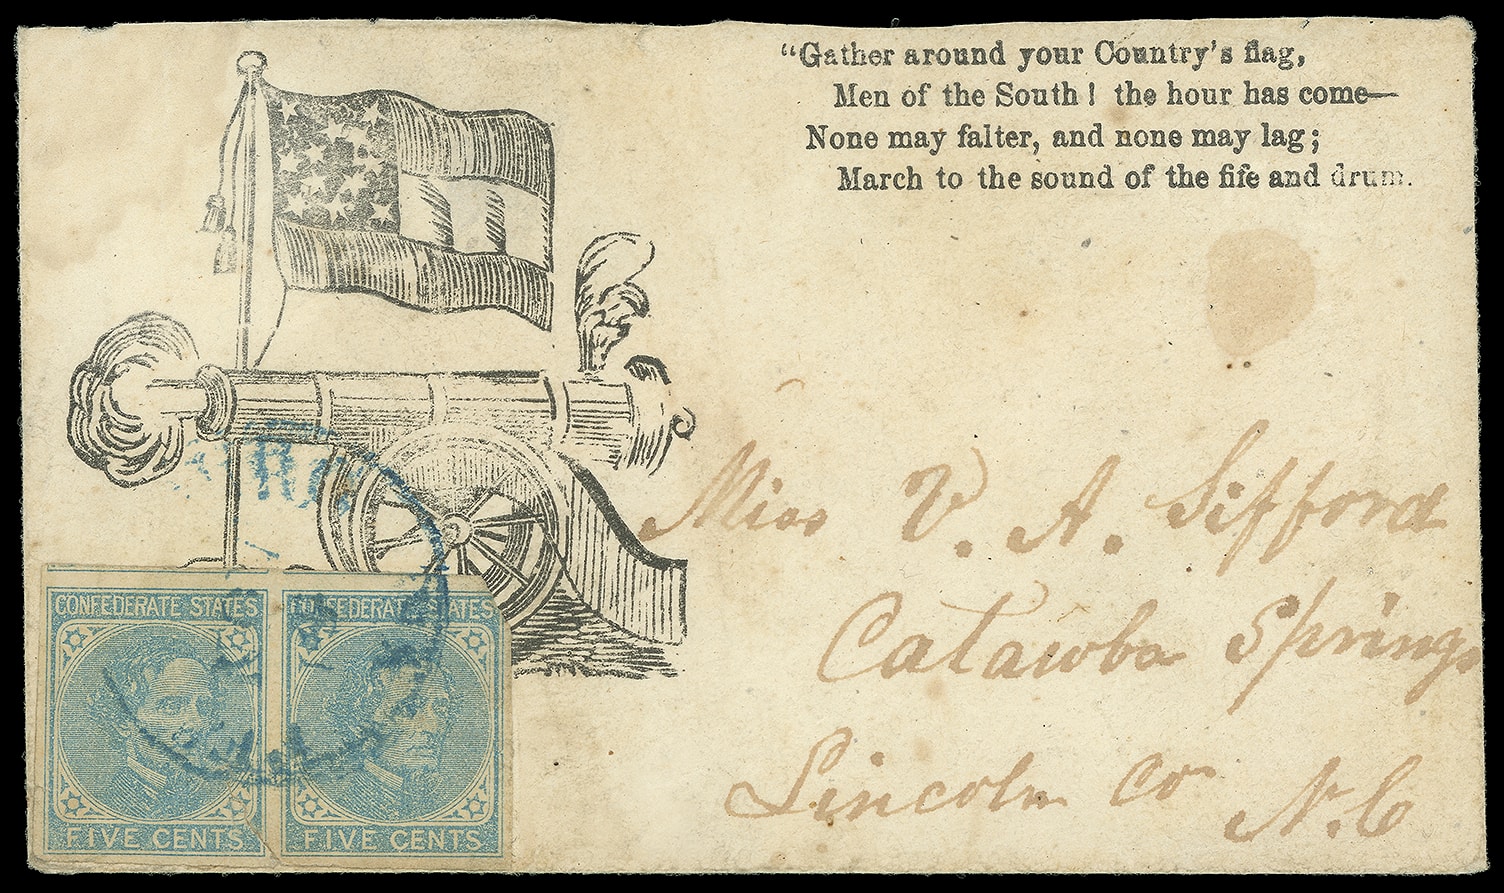 “Gather around your Country's flag,
Men of the South! the hour has come—
None may falter, and none may lag;
March to the sound of the fife and drum.
Miss V. A. Sifford
Catawba Springs
Lincoln Co N.C
CONFEDERATE STATES
FIVE CENTS
CONFEDERATE STATES
FIVE CENTS